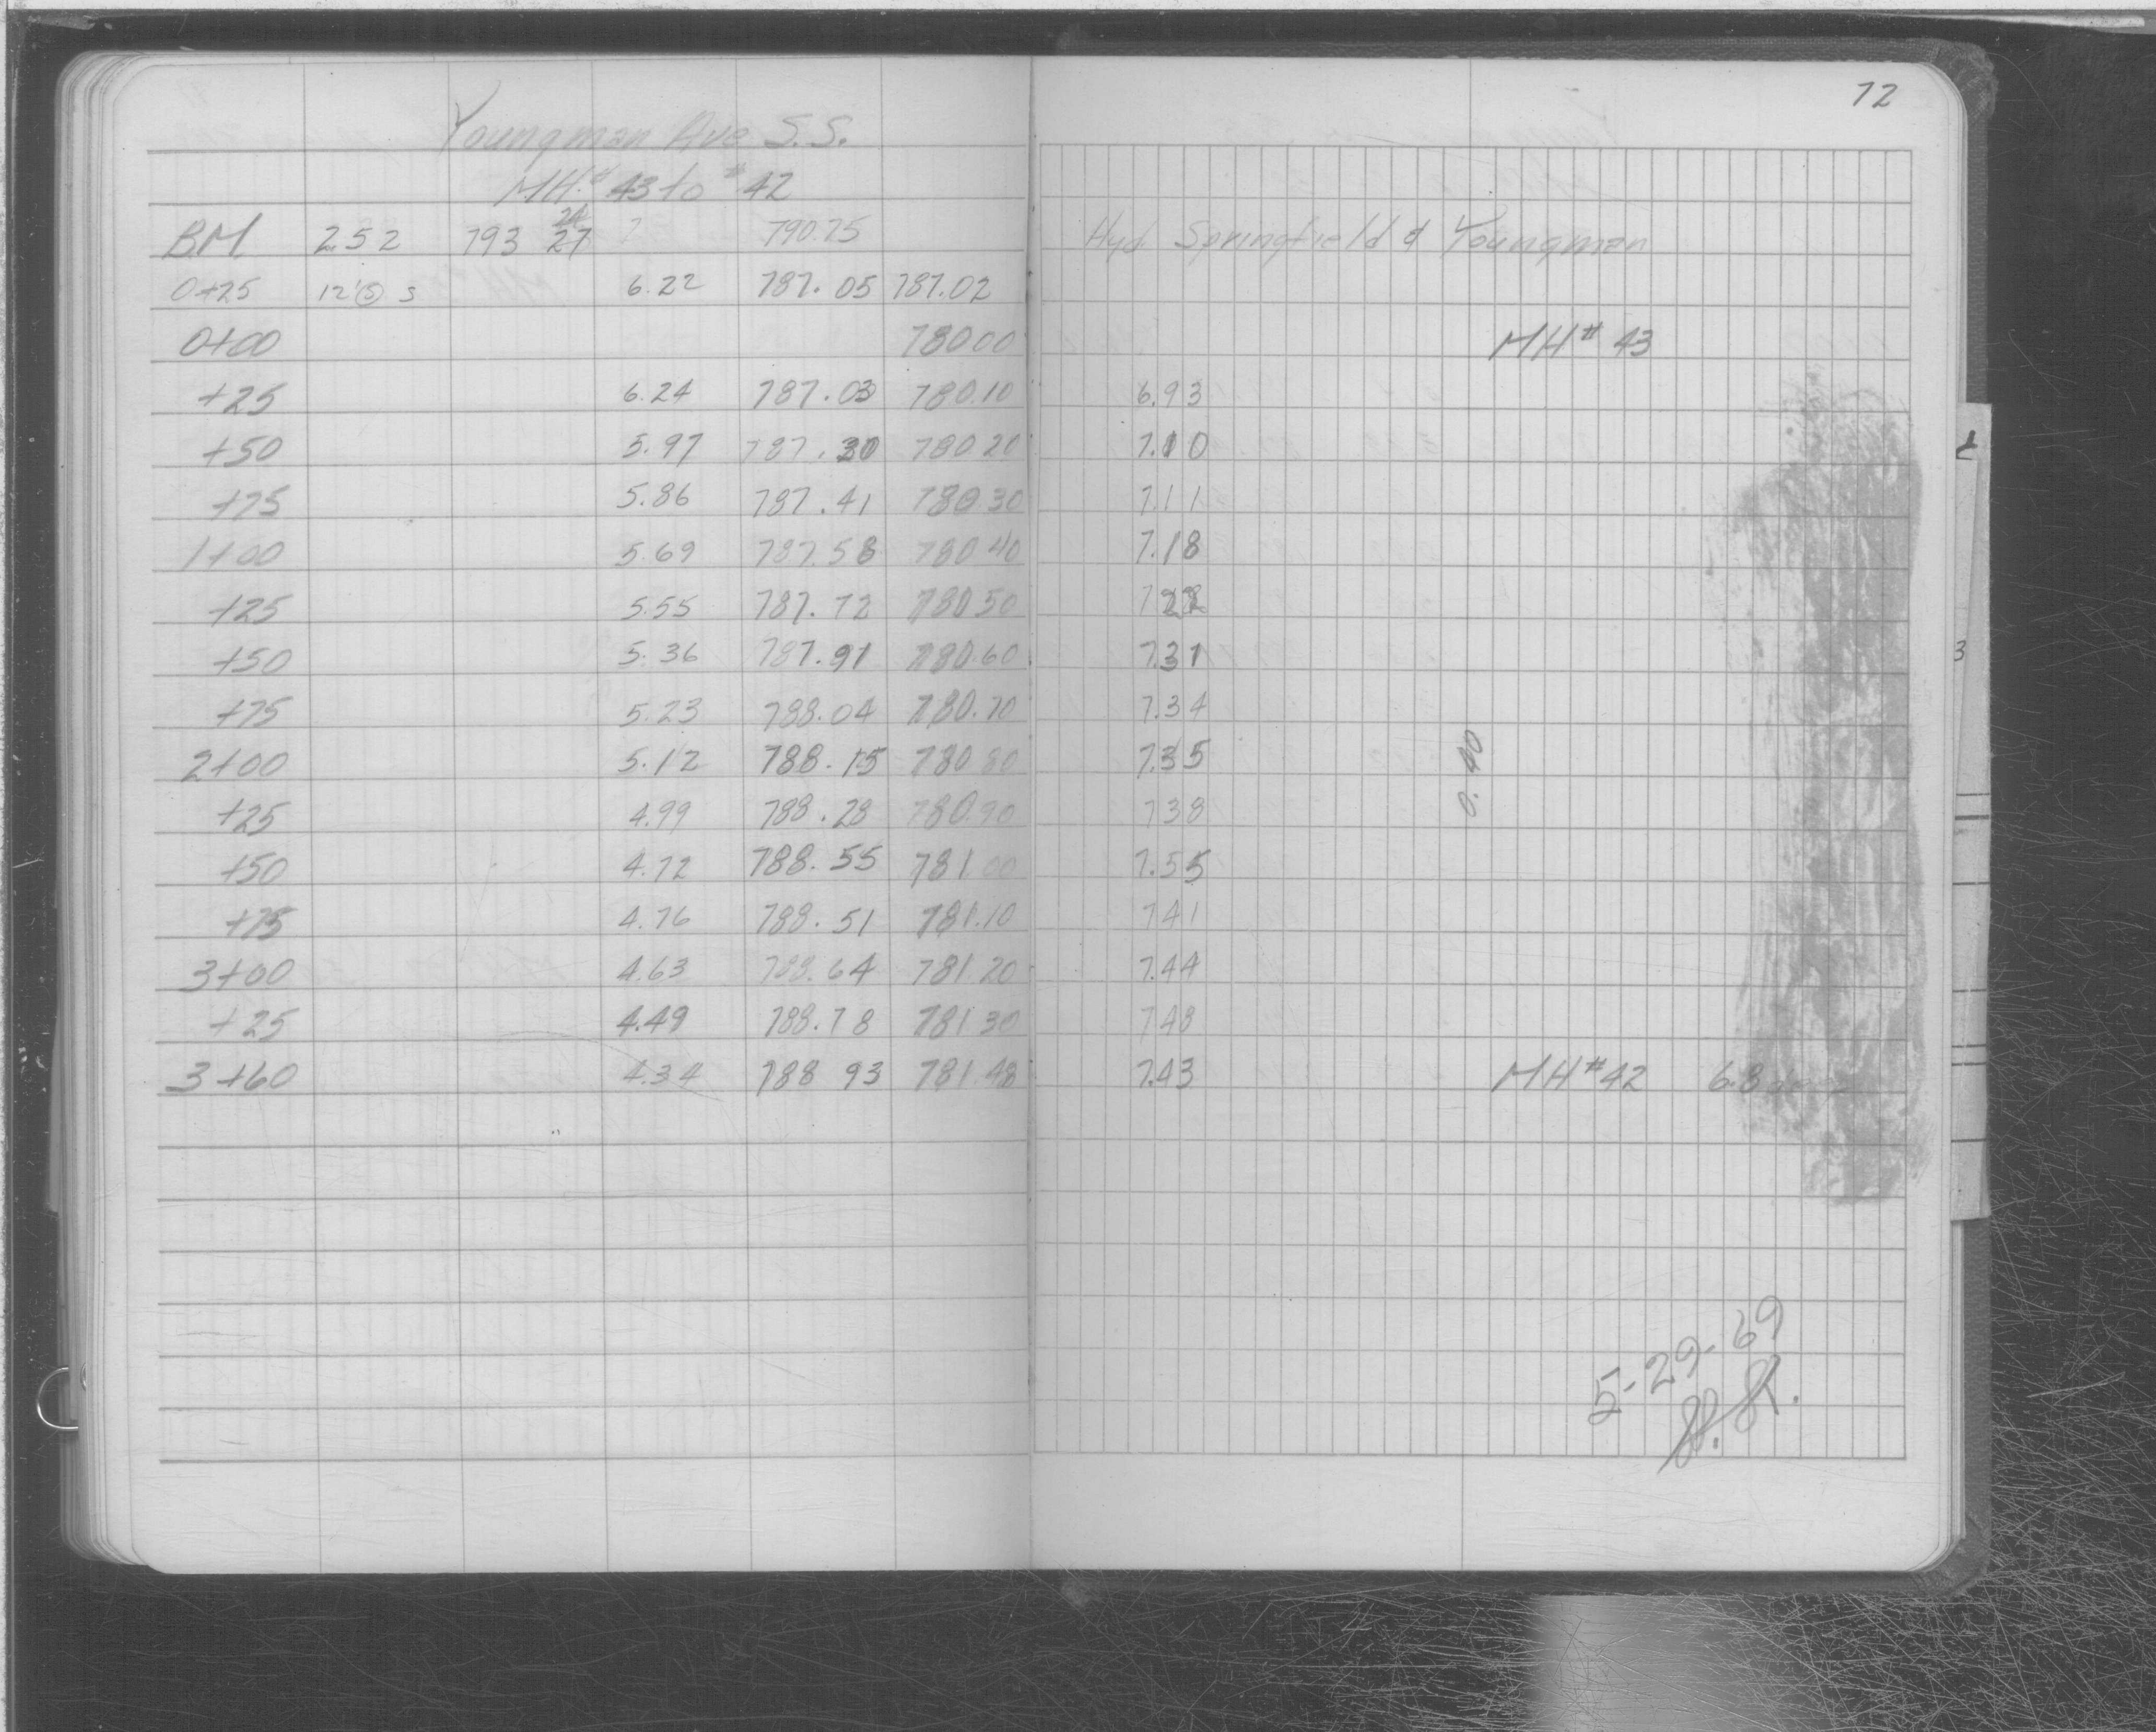 72
Youngman Ave S.S.
MH.# 43 to # 42
BM 2.52 793 24 27 790.75 Hyd. Springfield & Youngman
0+25 12' S 6.22 787.05 787.02
0+00 780 00 MH# 43
+25 6.24 787.03 780.10 6.93
+50 5.97 787.30 780 20 7.10
+75 5.86 787.41 780 30 7.11
1+00 5.69 787.58 780 40 7.18
+25 5.55 787.72 780 50 7 22
+50 5.36 787.91 780.60 7.31
+75 5.23 788.04 780.70 7.34
2+00 5.12 788.15 780 80 7.35
0.40
+25 4.99 788.28 780.90 7 38
+50 4.72 788.55 781 00 7.55
+75 4.76 788.51 781.10 7 41
3+00 4.63 788.64 781.20 7.44
+25 4.49 788.78 781 30 7 48
3+60 4.34 788 93 781.48 7.43 MH#42 6.8 deep
5-29-69